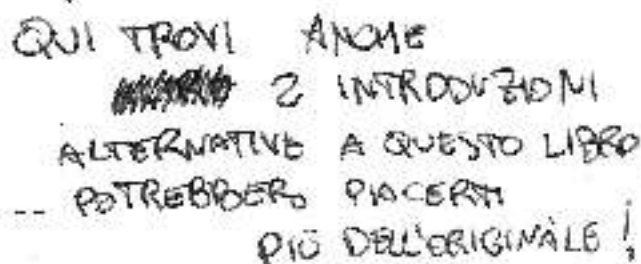 QUI TROVI ANCHE
2 INTRODUZIONI
ALTERNATIVE A QUESTO LIBRO
-- POTREBBERO PIACERTI
PIÙ DELL'ORIGINALE!